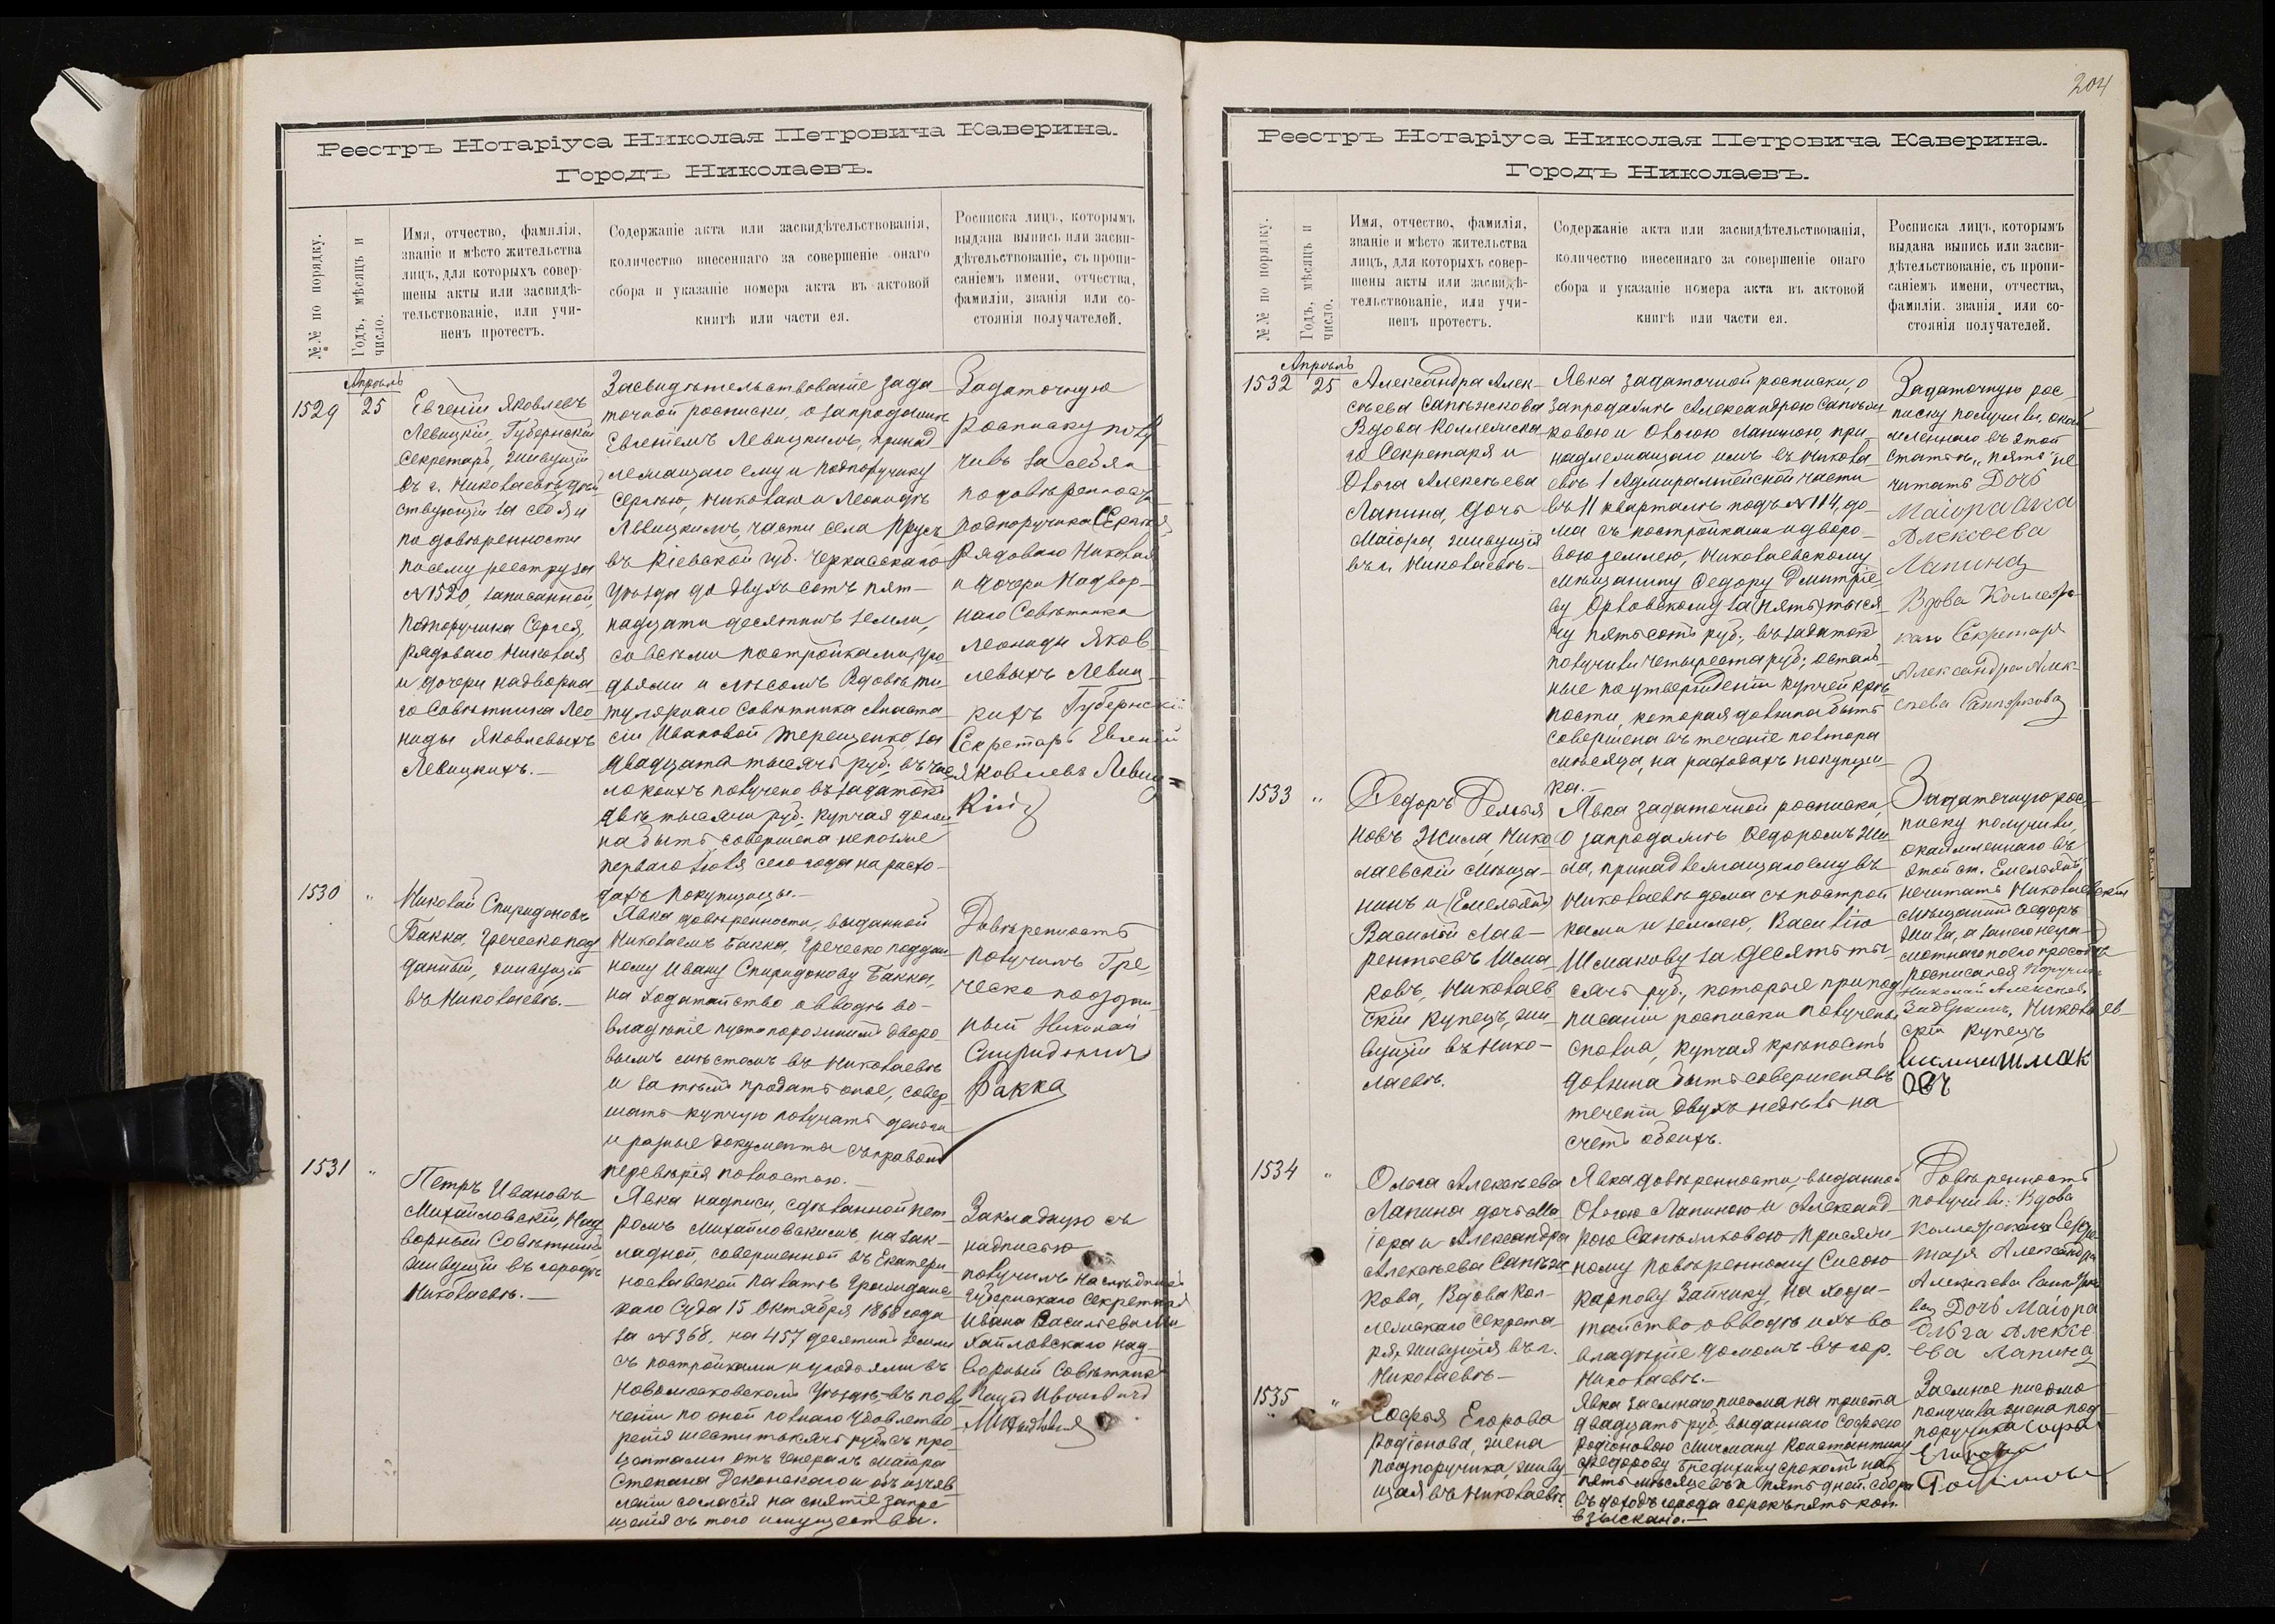 Реестръ Нотаріуса Николая Петровича Каверина.
Городъ Николаевъ.
№№ по порядку.
Годъ, мѣсяцъ и
число.
Имя, отчество, фамилія,
званіе и мѣсто жительства
лицъ, для которыхъ совер-
шены акты или засвидѣ-
тельствованіе, или учи-
ненъ протестъ.
Содержаніе акта или засвидѣтельствованія,
количество внесеннаго за совершеніе онаго
сбора и указаніе номера акта въ актовой
книгѣ или части ея.
Росписка лицъ, которымъ
выдана выпись или засви-
дѣтельствованіе, съ пропи-
саніемъ имени, отчества,
фамиліи, званія или со-
стоянія получателей.
1529
Апрѣль
25
Евгеній Яковлевъ
Левицкій, Губернскій
Секретарь, живущій
въ г. Николаевѣ, дѣй
ствующій за себя и
по довѣренности
по сему реестру за
№ 1520, записанной,
Подпоручика Сергея,
рядоваго Николая
и дочери надворна
го Совѣтника Лео
ниды Яковлевыхъ
Левицкихъ.—
Засвидѣтельствованіе зада
точной росписки, о запродажѣ
Евгеніемъ Левицкимъ, принад
лежащаго ему и подпоручику
Сергею, Николаю и Леонидѣ
Левицкимъ, части села Прусъ
въ Кіевской губ. Черкасскаго
уѣзда до двухъ сотъ пят-
надцати десятинъ земли,
со всѣми постройками, уго
дьями и лѣсомъ Вдовѣ ти-
тулярнаго Совѣтника Анаста
сіи Ивановой Терещенко, за
двадцать тысячъ руб., въ чис
ло коихъ получено въ задатокъ
двѣ тысячи руб., купчая долж
на быть совершена не позже
перваго Іюля сего года на расхо-
дахъ покупщицы.—
Задаточную
росписку полу
чивъ за себя и
по довѣренности
подпоручика Сергея
Рядоваго Николая
и дочери Надвор-
наго Совѣтника
Леониды Яков
левыхъ Левиц-
кихъ Губернскій
Секретарь Евгеній
Яковлевъ Левиц=
кій
1530
"
Николай Спиридоновъ
Бакка, Греческопод
данный, живущій
въ Николаевѣ.—
Явка довѣренности, выданной
Николаемъ Бакка, Греческо поддан
ному Ивану Спиридонову Бакка,
на ходатайство о вводѣ во-
владѣніе пустопорожнимъ дворо
вымъ мѣстомъ въ Николаевѣ
и затѣмъ продать оное, совер
шать купчую получать деньги
и разные документы съ правомъ
перевѣрія полностью.—
Довѣренность
Получилъ Гре
ческо поддан
ный Николай
Спиридонъ
Бакка
1531
"
Петръ Ивановъ
Михайловскій, Над
ворный Совѣтникъ
живущій въ городѣ
Николаевѣ.—
Явка надписи, сдѣланной Пет
ромъ Михайловскимъ, на зак-
ладной, совершенной въ Екатери-
нославской Палатѣ Гражданс
каго Суда 15 Октября 1868 года
за № 368, на 457 десятинъ земли
съ постройками и угодьями въ
Новомосковскомъ Уѣздѣ, въ полу
ченіи по оной полнаго удовлетво
ренія шести тысячъ руб. съ про
центами отъ Генералъ Маіора
Степана Деконскаго и объ изъяв
леніи согласія на снятіе запре
щенія съ того имущества.
Закладную съ
надписью
получилъ наслѣдникъ
Губернскаго Секретаря
Ивана Васильева Ми
хайловскаго над-
ворный Совѣтникъ
204
Реестръ Нотаріуса Николая Петровича Каверина.
Городъ Николаевъ.
№№ по порядку.
Годъ, мѣсяцъ и
число.
Имя, отчество, фамилія,
званіе и мѣсто жительства
лицъ, для которыхъ совер-
шены акты или засвидѣ-
тельствованіе, или учи-
ненъ протестъ.
Содержаніе акта или засвидѣтельствованія,
количество внесеннаго за совершеніе онаго
сбора и указаніе номера акта въ актовой
книгѣ или части ея.
Росписка лицъ, которымъ
выдана выпись или засви-
дѣтельствованіе, съ пропи-
саніемъ имени, отчества,
фамиліи. званія или со-
стоянія получателей.
1532
Апрѣль
25
Александра Алек-
сѣева Сапѣжкова
Вдова Коллежска
го Секретаря и
Ольга Алексѣева
Лапина, Дочь
Маіора, живущія
въ г. Николаевѣ.—
Явка задаточной росписки, о
запродажѣ Александрою Сапѣж
ковою и Ольгою Лапиною, при
надлежащаго имъ въ Никола-
евѣ 1 Адмиралтейской части
въ 11 кварталѣ подъ № 114, до
ма съ постройками и дворо-
вою землею, Николаевскому
мѣщанину Федору Дмитріе
ву Орловскому за (пять) тыся
чу пятьсотъ руб., въ задатокъ
получили четыреста руб; осталь
ные по утвержденіи купчей крѣ
пости, которая должна быть
совершена въ теченіе полтора
мѣсяца, на расходахъ покупщи-
ка.—
Задаточную рос-
писку получили, окай
мленнаго въ этой
статьѣ „пять" не
читать Дочь
Маіора Ольга
Алексѣева
Лапина
Вдова Коллежс
каго Секретаря
Александра Алек-
сѣева Сапѣжкова
1533
"
Федоръ Демья
новъ Жила, Нико
лаевскій мѣща-
нинъ и (Емельянъ)
Василій Лав-
рентьевъ Шма-
ковъ, Николаев
скій купецъ, жи-
вущій въ Нико-
лаевѣ.
Явка задаточной росписки,
о запродажѣ Федоромъ Жи
ла, принадлежащаго ему въ
Николаевѣ дома съ построй
ками и землею, Василію
Шмакову за десять ты-
сячъ руб., которые при под
писаніи росписки получены
сполна, купчая крѣпость
должна быть совершена въ
теченіи двухъ недѣль на
счетъ обоихъ.
Задаточную рос-
писку получили,
окаймленнаго въ
этой ст. Емельянъ
не читать Николаевскій
мѣщанинъ Федоръ
Жила, а за него негра-
мотнаго по его просьбѣ
росписался Поручикъ
Николай Алексѣевъ
Николаев-
скій купецъ
Шмак
овъ
1534
"
Ольга Алексѣева
Лапина дочь Ма
іора и Александра
Алексѣева Сапѣж
кова, Вдова Кол-
лежскаго Секрета
ря, живущія въ г.
Николаевѣ—
Явка довѣренности, выданной
Ольгою Лапиною и Александ
рою Сапѣжковою Присяж-
ному Повѣренному Сисою
Карпову Зайчику, на хода-
тайство о вводѣ ихъ во
владѣніе домомъ въ гор.
Николаевѣ.—
Довѣренность
получили: Вдова
Коллежскаго Секре
таря Александра
Алексѣева Сапѣжко
ва Дочь Маіора
Ольга Алексѣ
ева Лапина
1535
"
Софья Егорова
Родіонова, жена
Подпоручика, живу
щая въ Николаевѣ.
Явка заемнаго письма на триста
двадцать руб., выданнаго Софьею
Родіоновою Мичману Константину
Федорову Бредихину срокомъ на
пять мѣсяцевъ и пять дней. сбора
въ доходъ города сорокъ пять коп.
взыскано.—
Заемное письмо
получила жена под-
поручика Софья
Егорова
Родіонова